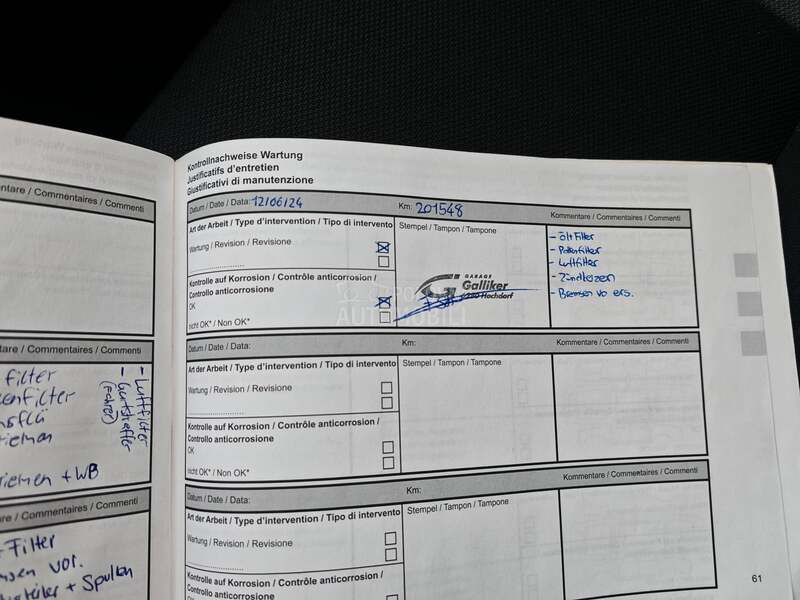 Kontrollnachweise Wartung
Justificatifs d'entretien
Giustificativi di manutenzione
Datum / Date / Data: 12/06/24
Km: 201548
Kommentare / Commentaires / Commenti
Art der Arbeit / Type d'intervention / Tipo di intervento
Stempel / Tampon / Tampone
Wartung / Revision / Revisione
Kontrolle auf Korrosion / Contrôle anticorrosion /
Controllo anticorrosione
OK
nicht OK* / Non OK*
GARAGE
Galliker
6280 Hochdorf
- Ölfilter
- Pollenfilter
- Luftfilter
- Zündkerzen
- Bremsen vo ers.
Datum / Date / Data:
Km:
Kommentare / Commentaires / Commenti
Art der Arbeit / Type d'intervention / Tipo di intervento
Stempel / Tampon / Tampone
Wartung / Revision / Revisione
Kontrolle auf Korrosion / Contrôle anticorrosion /
Controllo anticorrosione
OK
nicht OK* / Non OK*
Datum / Date / Data:
Km:
Kommentare / Commentaires / Commenti
Art der Arbeit / Type d'intervention / Tipo di intervento
Stempel / Tampon / Tampone
Wartung / Revision / Revisione
Kontrolle auf Korrosion / Contrôle anticorrosion /
Controllo anticorrosione
61
mentare / Commentaires / Commenti
ntare / Commentaires / Commenti
filter
enfilter
riemen
riemen + WB
- Luftfilter
ntare / Commentaires / Commenti
Filter
sen vor.
+ Spulen
AUTOMOBILI